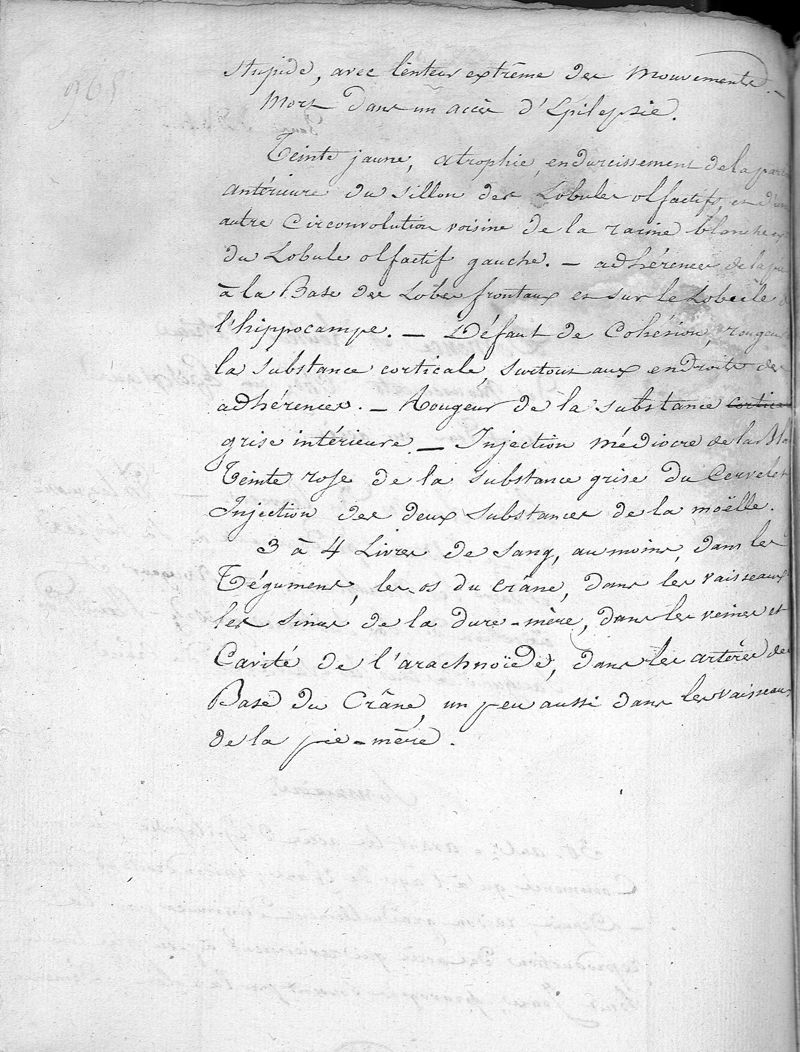 965
stupide, avec lenteur extrême des mouvements. —
Mort dans un accès d'Epilepsie.
Teinte jaune, atrophie, endurcissement de la partie
antérieure du sillon des Lobules olfactifs, et d'une
autre Circonvolution voisine de la racine blanche
du Lobule olfactif gauche. — adhérences de la
à la Base des Lobes frontaux et sur le Lobule de
l'hippocampe. — Défaut de Cohésion, rougeur
la substance corticale, surtout aux endroits des
adhérences. — Rougeur de la substance cortica
grise intérieure. — Injection médiocre de la Bla
Teinte rose de la substance grise du Cervelet
Injection des deux substances de la moëlle.
3 à 4 Livres de sang, au moins, dans les
Tégumens, les os du crâne, dans les vaisseaux
les sinus de la dure-mère, dans les veines et
Cavité de l'arachnoïde, dans les artères de
Base du Crâne, un peu aussi dans les vaisseaux
de la pie-mère.